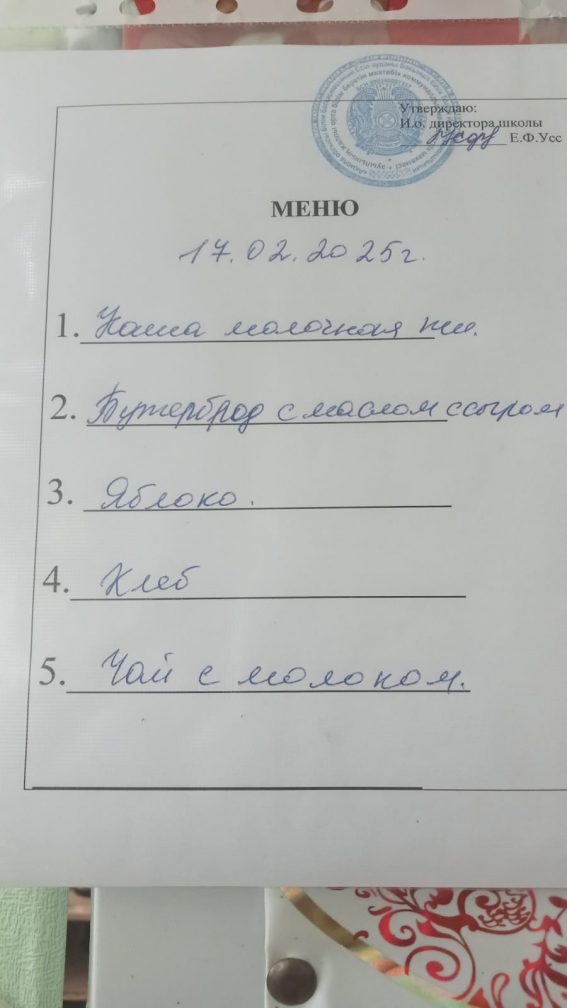 Утверждаю:
И.о. директора школы
Е.Ф.Усс
МЕНЮ
17.02.2025г.
1. Каша молочная
2. Бутерброд с маслом с сыром
3. Яблоко.
4. Хлеб
5. Чай с молоком.